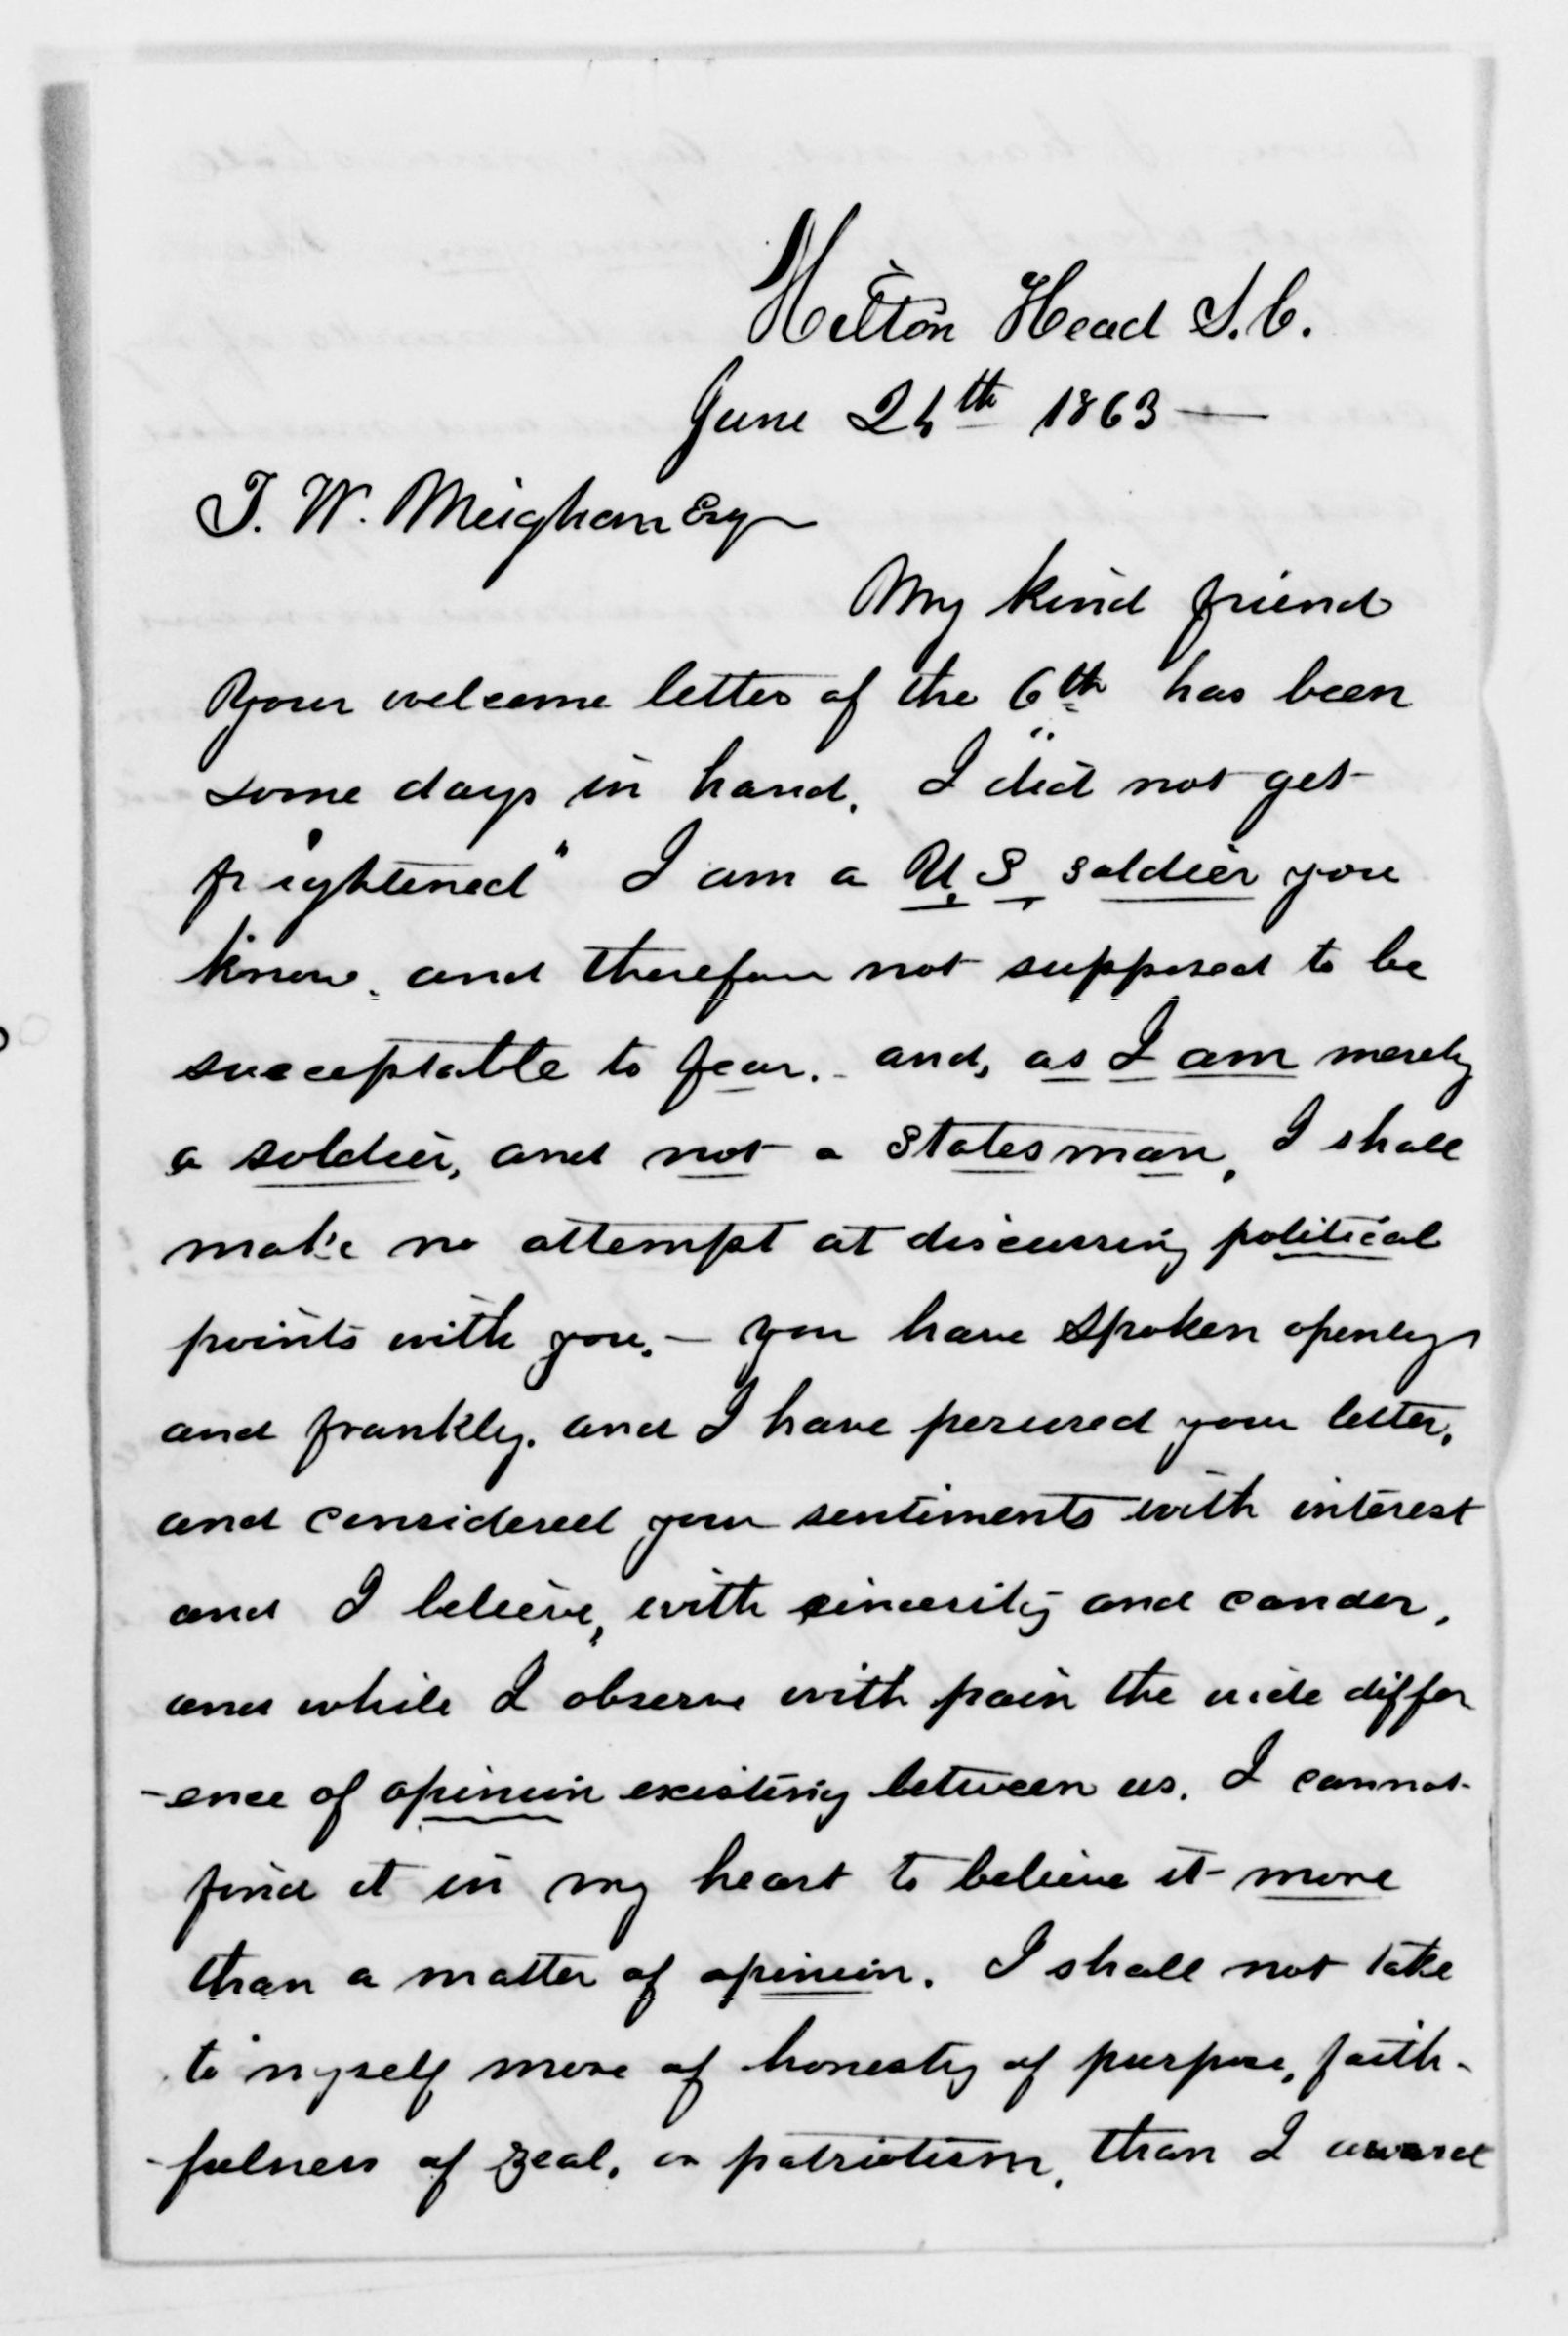 Hilton Head S.C.
June 24th 1863 —
T. W. Meighan Esq
My kind friend
Your welcome letter of the 6th has been
some days in hand. I "did not get
frightened" I am a U. S. soldier you
know. and therefore not supposed to be
succeptable to fear. - and, as I am merely
a soldier, and not a Statesman, I shall
make no attempt at discussing political
points with you. — you have spoken openly
and frankly. and I have perused your letter,
and considered your sentiments with interest
and I believe, with sincerity and candor,
and while I observe with pain the wide differ
-ence of opinion existing between us. I cannot
find it in my heart to believe it more
than a matter of opinion. I shall not take
to myself more of honesty of purpose, faith-
-fulness of zeal, or patriotism, than I award